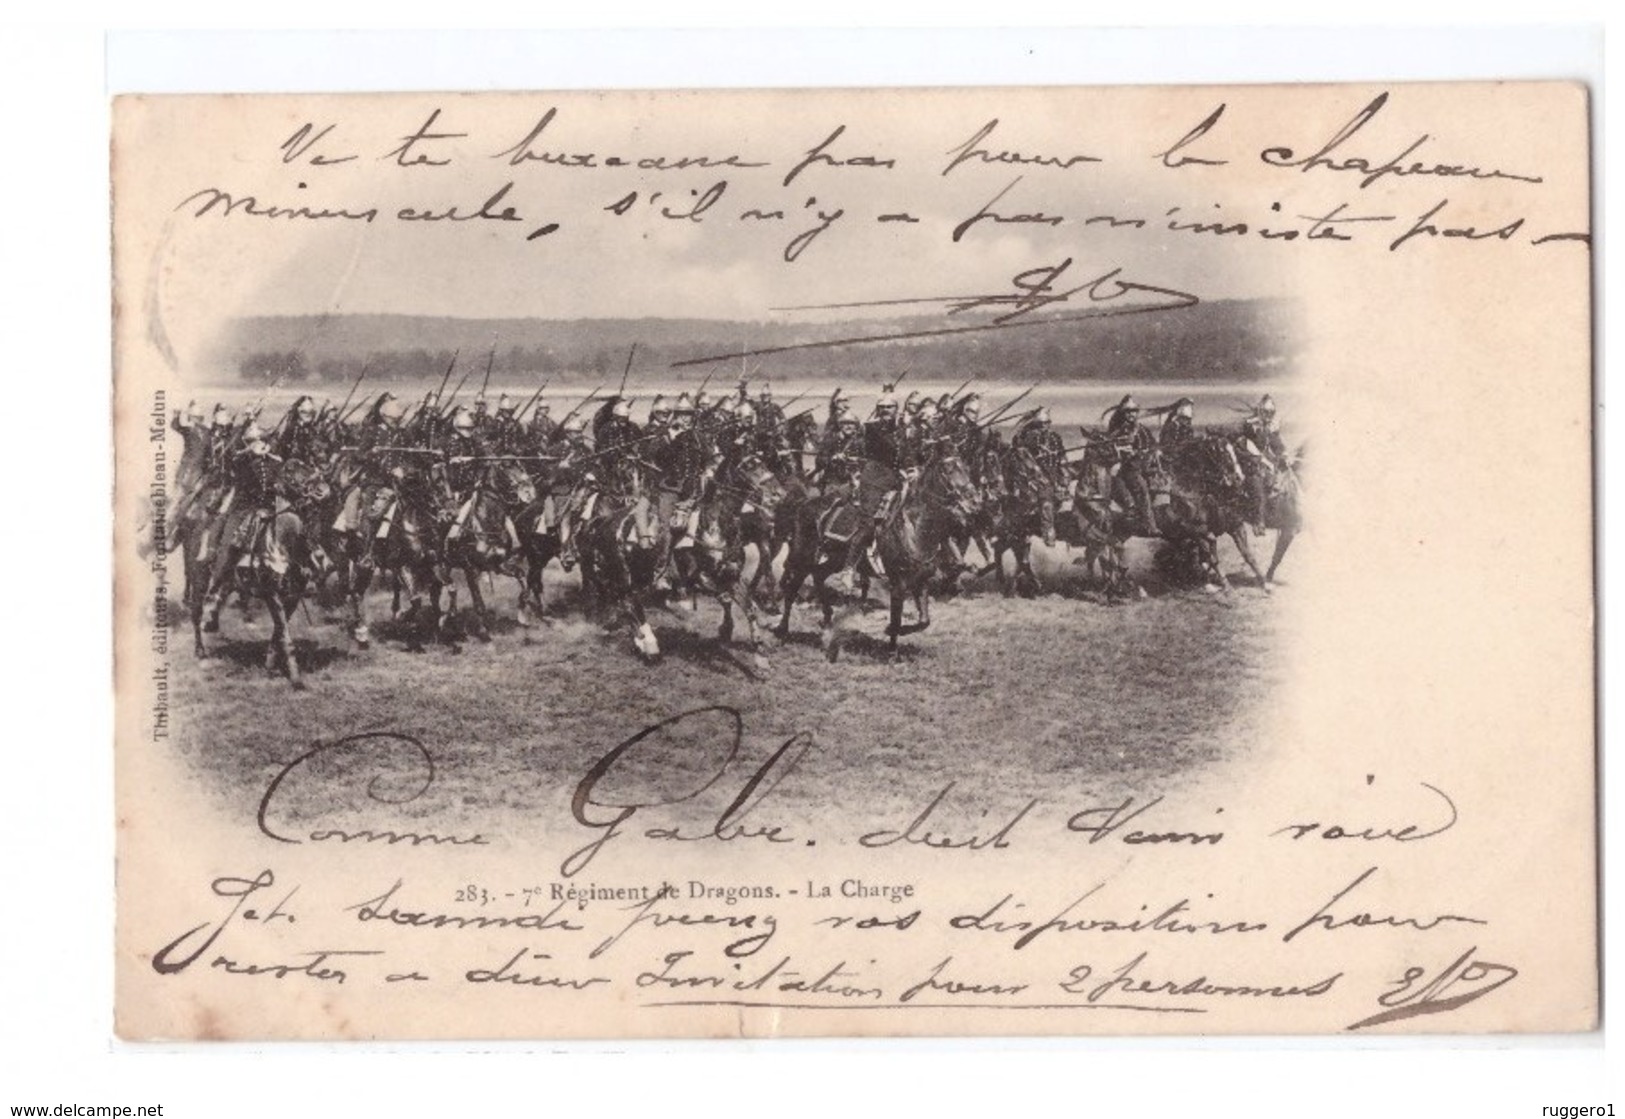 Ne te pas pour le chapeau
minuscule, s'il n'y a pas n'insiste pas -
Thibault, éditeurs, Fontainebleau-Melun
Comme Gabr. doit venir
283. - 7e Régiment de Dragons. - La Charge
samedi vos dispositions pour
rester a dîner Invitation pour 2 personnes
www.delcampe.net
ruggero1